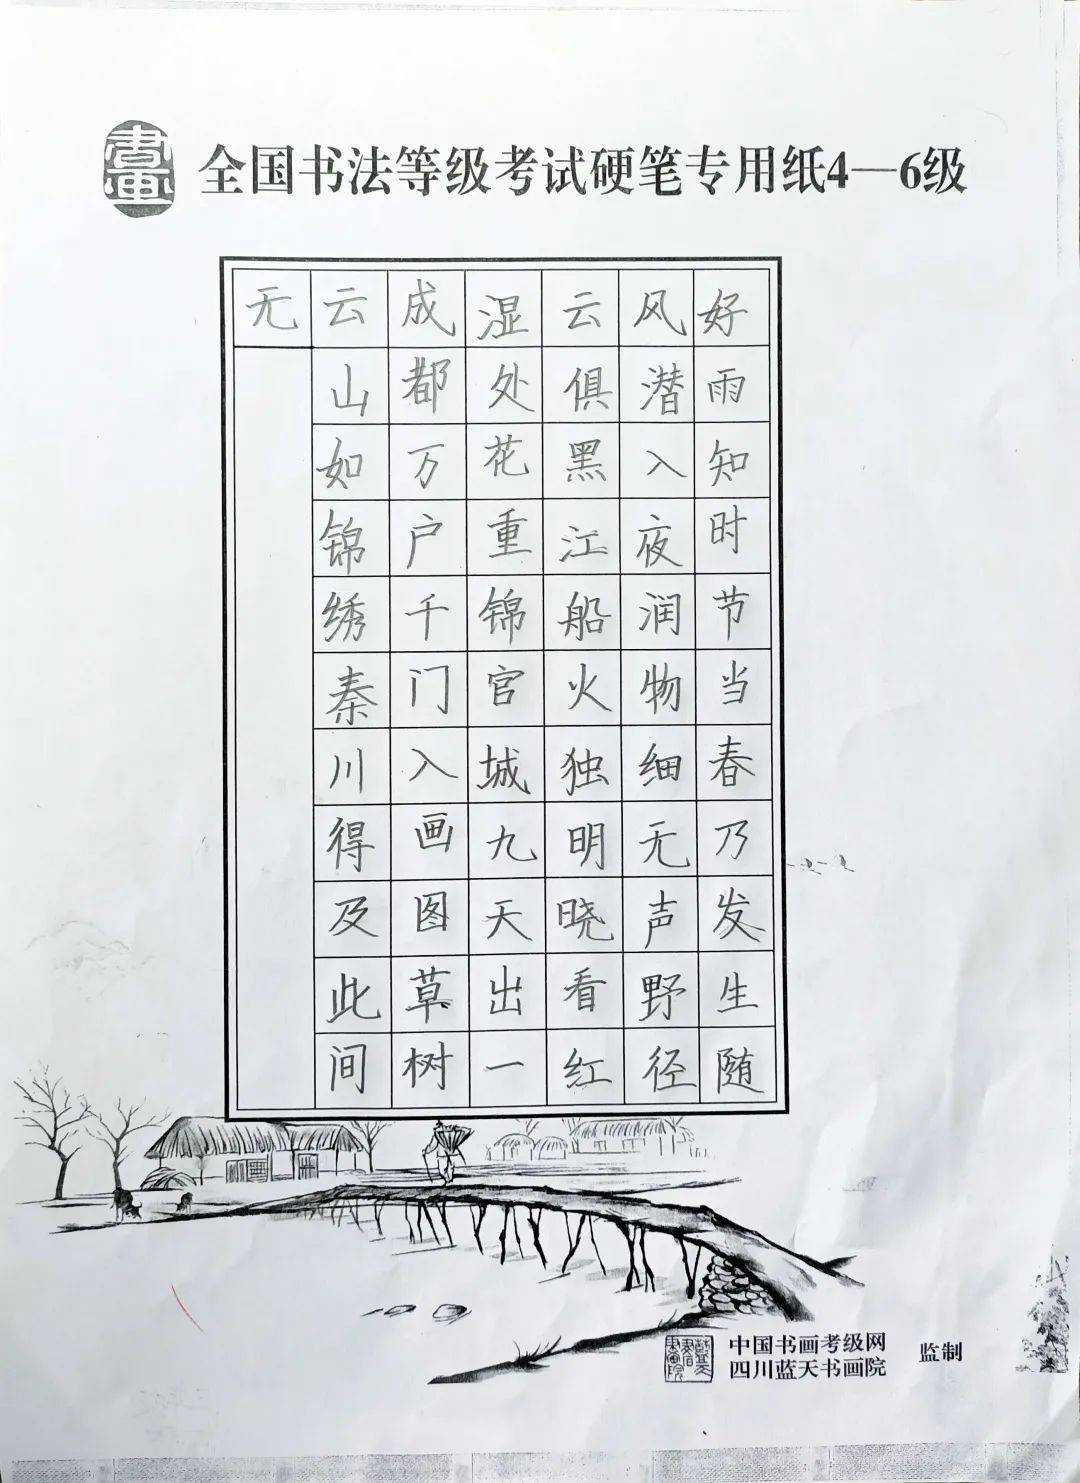 書画
全国书法等级考试硬笔专用纸4—6级
好雨知时节当春乃发生随
风潜入夜润物细无声野径
云俱黑江船火独明晓看红
湿处花重锦官城九天出一
成都万户千门入画图草树
云山如锦绣秦川得及此间
无
中国书画考级网
四川蓝天书画院
监制